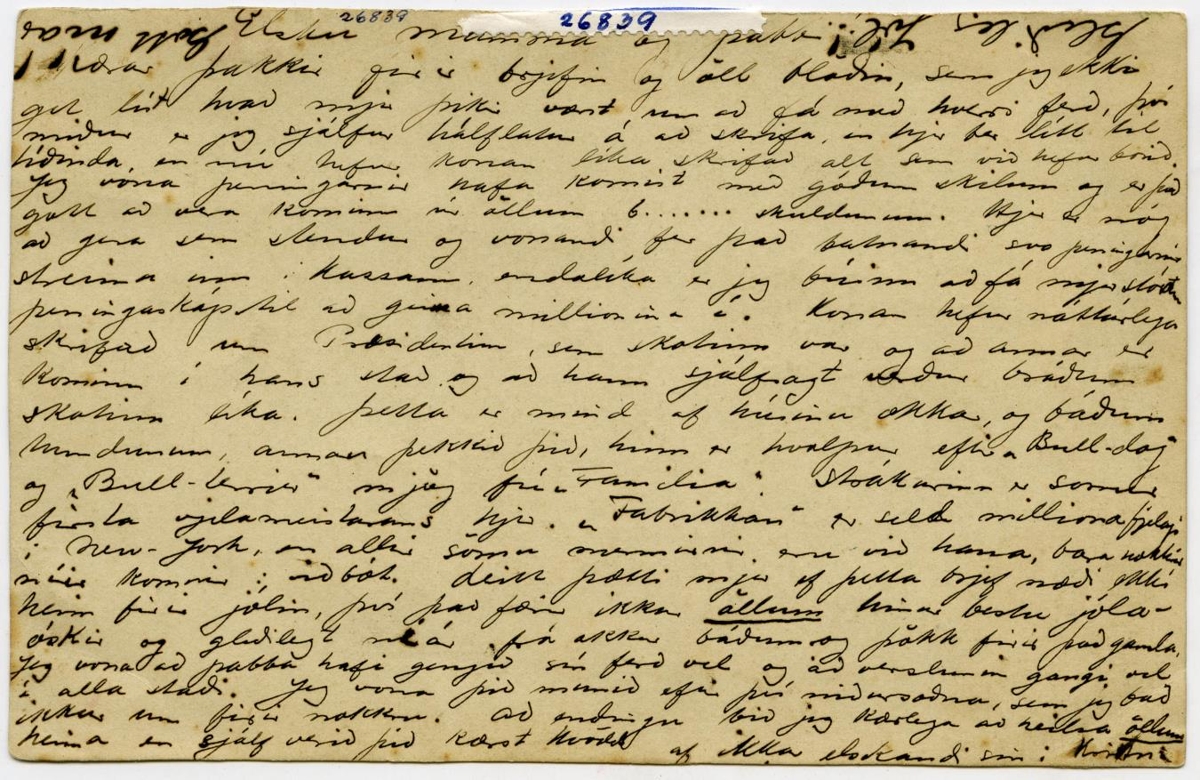 26839
26839
Elsku mamma og pabbi!
Kærar þakkir firir brjefin og öll blöðin, sem jeg ekki
get líst hvað mjer þikir vært um að fá með hverri ferð, því
miður er jeg sjálfur hálflatur á að skrifa, en hjer ber lítt til
tíðinda, en nú hefur konan líka skrifað alt sem við hefur borið.
Jeg vona peningarnir hafa komist með góðum skilum og er það
gott að vera kominn úr öllum b....... skuldunum. Hjer er nóg
að gera sem stendur og vonandi fer það batnandi svo peningarnir
streima inn i kassann, enda líka er jeg búinn að fá mjer stóran
peningaskáp til að geima millionina í. Konan hefur náttúrlega
skrifað um Præsidentinn, sem skotinn var og að annar er
kominn í hans stað og að hann sjálfsagt verður bráðum
skotinn líka. Þetta er mind af húsinu okkar, og báðum
hundunum, annan þekkið þið, hinn er hvolpur eftir „Bull-dog"
og „Bull-terrier" mjög fín „Familia". Strákurinn er sonur
firsta vjelameistarans hjer. „Fabrikkan" er seld millionafjelagi
i New-York, en allir sömu mennirnir eru við hana, bara nokkrir
níir komnir í viðbót. Leitt þætti mjer ef þetta brjef næði ekki
heim firir jólin, því það færir ikkur öllum hinar bestu jóla-
óskir og gleðilegt níár frá okkur báðum og þökk firir það gamla.
Jeg vona að pabba hafi gengið sín ferð vel og að verslunin gangi vel
i alla staði. Jeg vona þið munið eftir því niðursoðna, sem jeg bað
ikkur um firir nokkru. Að endingu bið jeg kærlega að heilsa öllum
heima en sjálf verið þið kærst kvödd af ikkar elskandi sini